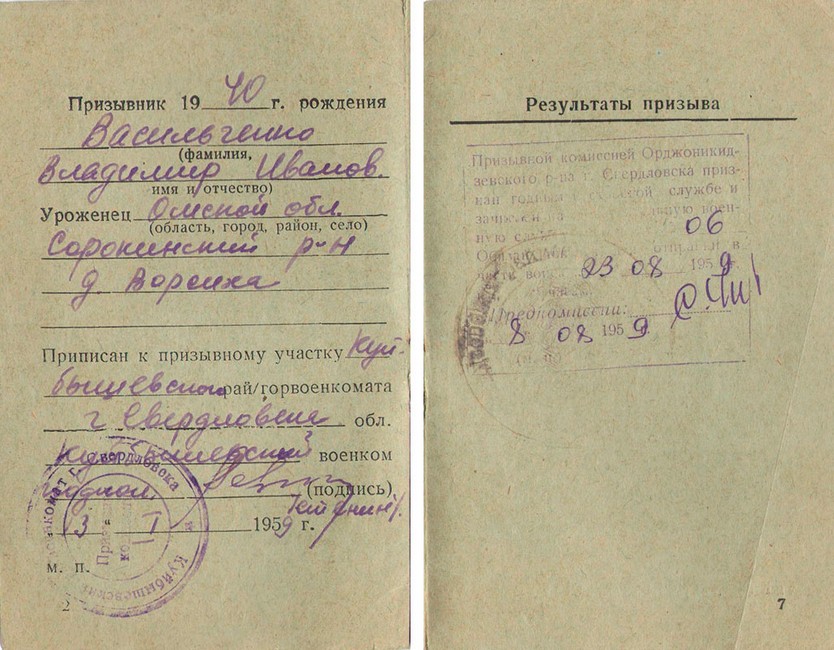 Призывник 1940 г. рождения
Васильченко
(фамилия,
Владимир Иванов.
имя и отчество)
Уроженец Омской обл.
(область, город, район, село)
Сорокинский р-н
д. Ворсиха
Приписан к призывному участку Куй-
бышевского рай/горвоенкомата
г. Свердловска обл.
Куйбышевский военком
(подпись)
13 I 1959 г.
м. п.
г. Свердловска
Куйбышевский
2
Результаты призыва
Призывной комиссией Орджоникид-
зевского р-на г. Свердловска приз-
нан годным к службе и
воен-
ную 06
в
23 08 1959
Предкомиссии:
8 08 1959 г.
7